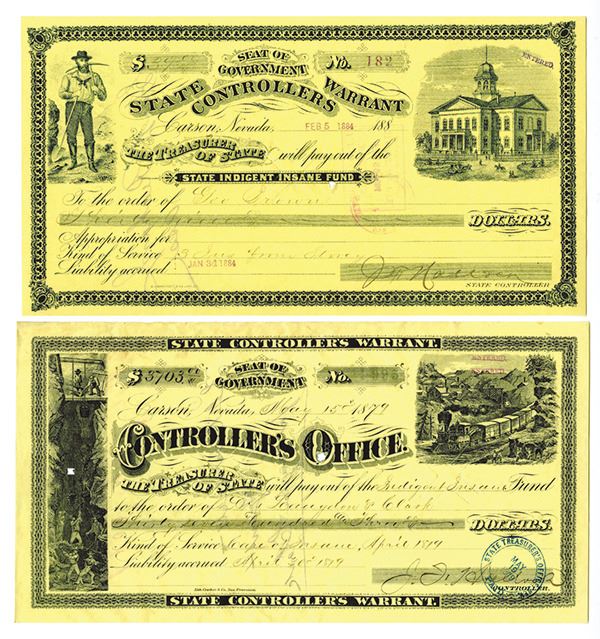 $
SEAT OF
GOVERNMENT
No. 182
ENTERED
STATE CONTROLLERS WARRANT
Carson, Nevada, FEB 5 1884 188
THE TREASURER OF STATE will pay out of the
STATE INDIGENT INSANE FUND
To the order of Geo Brown
DOLLARS.
Appropriation for
Kind of Service
Liability accrued JAN 31 1884
STATE CONTROLLER
STATE CONTROLLER'S WARRANT.
$ 3703
SEAT OF
GOVERNMENT
No.
ENTERED
Carson, Nevada, May 15 1879
CONTROLLER'S OFFICE.
THE TREASURER OF STATE will pay out of the Indigent Insane Fund
to the order of & Clark
Thirty seven hundred & Three
DOLLARS.
Kind of Service care of Insane, April 1879
Liability accrued April 30 1879
STATE TREASURER'S OFFICE
MAY
CONTROLLER.
STATE CONTROLLER'S WARRANT.